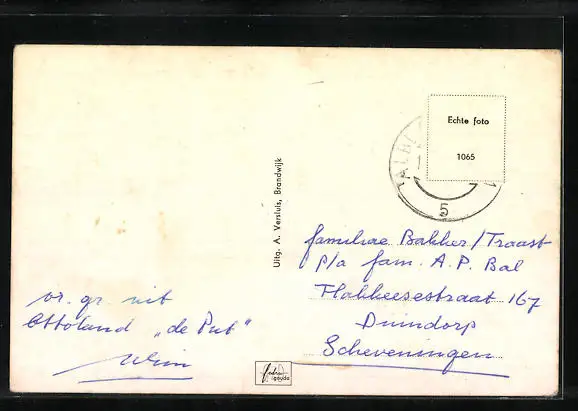 Echte foto
1065
5
Uitg. A. Versluis, Brandwijk
familiae Bakker/Traast
p/a fam. A.P. Bal
Flakkeesestraat 167
Duindorp
Scheveningen
vr. gr. uit
Ottoland „de Put"
Wim
gouda